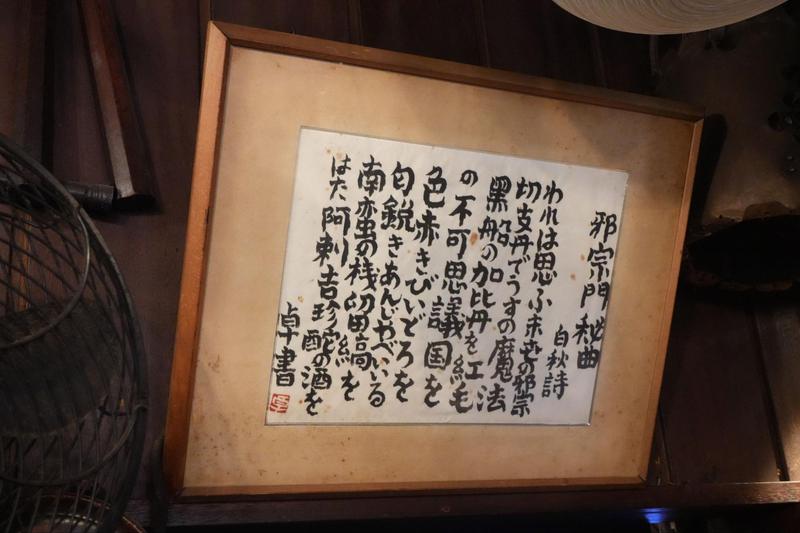 邪宗門秘曲
白秋詩
われは思ふ末世の邪宗
切支丹でうすの魔法
黒船の加比丹を紅毛
の不可思議国を
色赤きびいどろを
匂鋭きあんじやべいる
南蛮の桟留縞を
はた阿剌吉珍酡の酒を
卓書